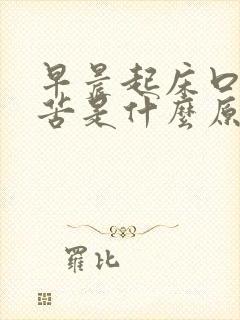 早晨起床口
苦是什麼原
羅比